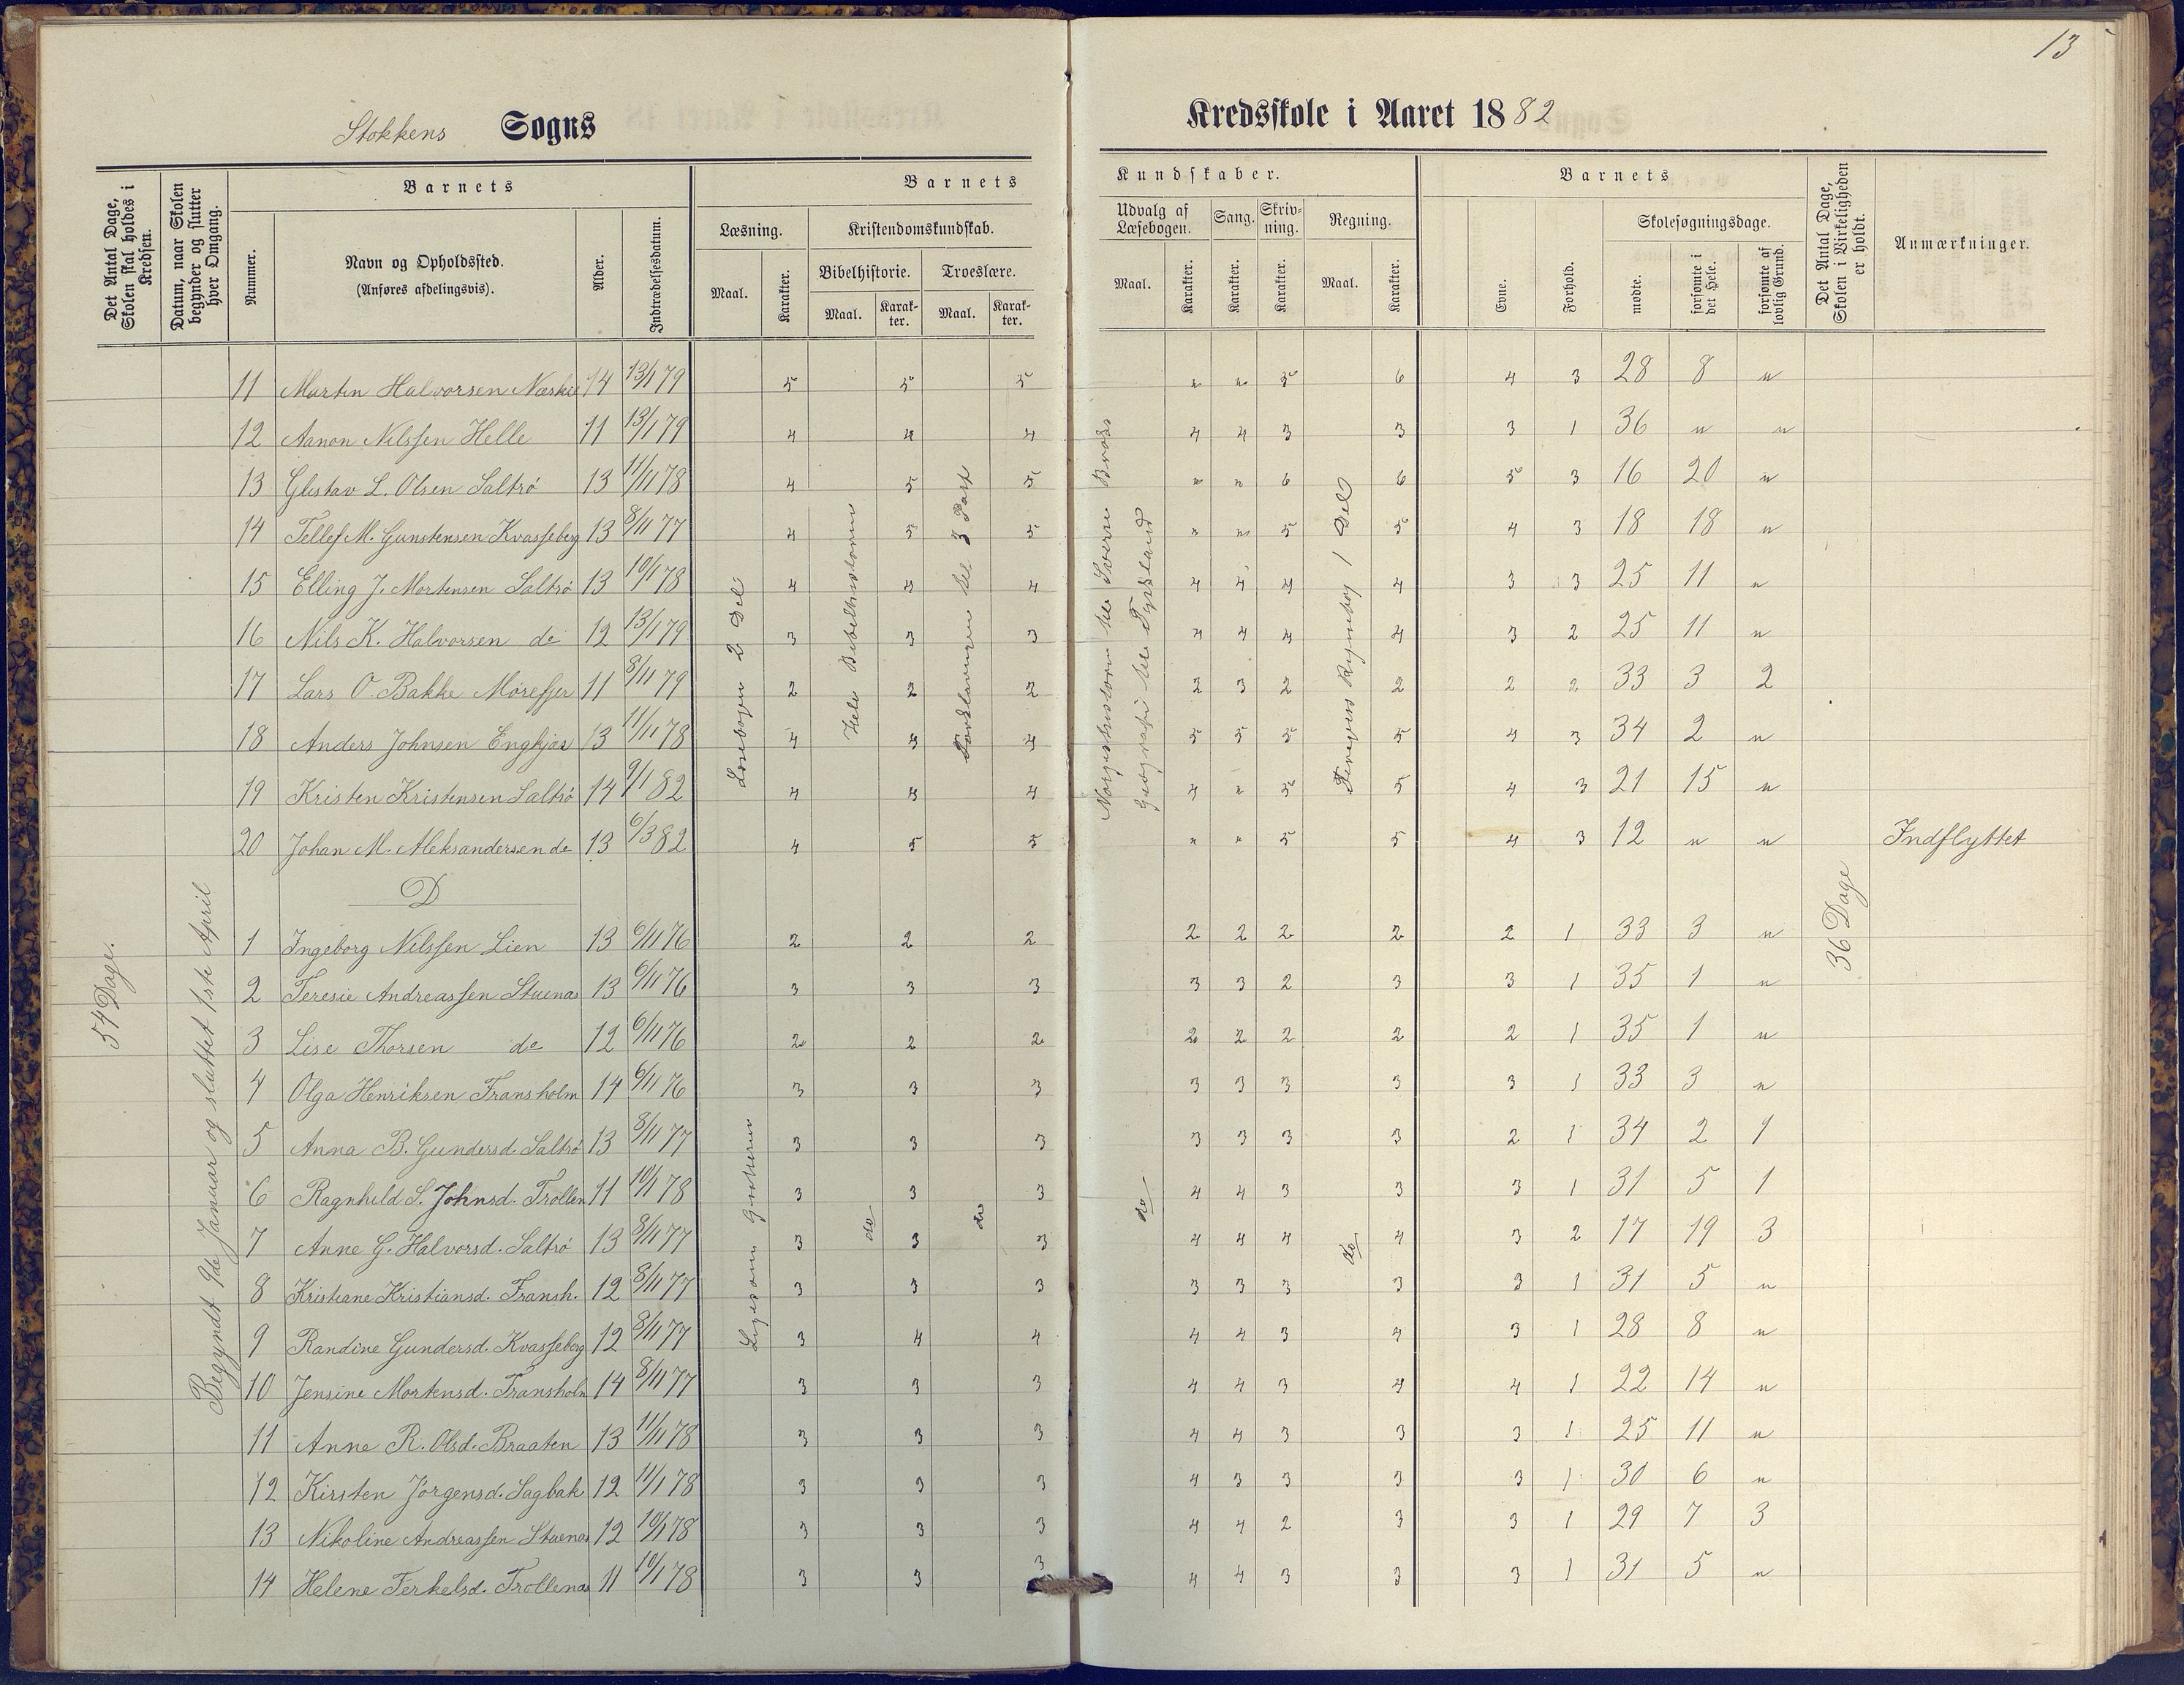 13
Stokkens Sogns Kredsskole i Aaret 1882
Det Antal Dage, Skolen skal holdes i Kredsen.
Datum, naar Skolen begynder og slutter hver Omgang.
Barnets
Nummer.
Navn og Opholdssted.
(Anføres afdelingsvis).
Alder.
Indtrædelsesdatum.
Barnets Kundskaber.
Læsning.
Maal.
Karakter.
Kristendomskundskab.
Bibelhistorie.
Maal.
Karakter.
Troeslære.
Maal.
Karakter.
Udvalg af Læsebogen.
Maal.
Karakter.
Sang.
Karakter.
Skrivning.
Karakter.
Regning.
Maal.
Karakter.
Barnets
Evne.
Forhold.
Skolesøgningsdage.
mødte.
forsømte i det Hele.
forsømte af lovlig Grund.
Det Antal Dage, Skolen i Virkeligheden er holdt.
Anmærkninger.
54 Dage.
Begyndt 9de Januar og sluttet 1ste April
Læsebogen 2 Del
Hele Bibelhistorien
Forklaringen til 3 Part
Norgeshistorien til Sverre
Geografi til Tydskland
Regnebog 1 Del
36 Dage
11 Marten Halvorsen 14 13/1 79 5 5 5 " " 5 6 4 3 28 8 "
12 Aanon Nilssen Helle 11 13/1 79 4 4 4 4 4 3 3 3 1 36 " "
13 Gustav L. Olsen Saltrö 13 11/11 78 4 5 5 " " 6 6 5 3 16 20 "
14 Tellef M. Gunstensen Kvasseberg 13 8/11 77 4 5 5 " " 5 5 4 3 18 18 "
15 Elling J. Mortensen Saltrö 13 10/1 78 4 4 4 4 4 4 4 3 3 25 11 "
16 Nils K. Halvorsen do 12 13/1 79 3 3 3 4 4 4 4 3 2 25 11 "
17 Lars O. Bakke Mörefjer 11 8/11 79 2 2 2 2 3 2 2 2 2 33 3 2
18 Anders Johnsen Engkjær 13 11/11 78 4 4 4 5 5 5 5 4 3 34 2 "
19 Kristen Kristensen Saltrö 14 9/1 82 4 4 4 4 " 5 5 4 3 21 15 "
20 Johan M. Aleksandersen do 13 6/3 82 4 5 5 " " 5 5 4 3 12 " " Indflyttet
D
Ligesom Gutterne
do
do
do
do
1 Ingeborg Nilssen Lien 13 6/11 76 2 2 2 2 2 2 2 2 1 33 3 "
2 Teresie Andreassen Stuenæs 13 6/11 76 3 3 3 3 3 2 3 3 1 35 1 "
3 Lise Thorsen do 12 6/11 76 2 2 2 2 2 2 2 2 1 35 1 "
4 Olga Henriksen Fransholm 14 6/11 76 3 3 3 3 3 3 3 3 1 33 3 "
5 Anna B. Gundersd. Saltrö 13 8/11 77 3 3 3 3 3 3 3 2 1 34 2 1
6 Ragnhild S. Johnsd. Trollen 11 10/1 78 3 3 3 4 4 3 3 3 1 31 5 1
7 Anne G. Halvorsd. Saltrö 13 8/11 77 3 3 3 4 4 4 4 3 2 17 19 3
8 Kristiane Kristiansd. Fransh. 12 8/11 77 3 3 3 3 3 3 3 3 1 31 5 "
9 Randine Gundersd. Kvasseberg 12 8/11 77 3 4 4 4 4 3 4 3 1 28 8 "
10 Jensine Mortensd. Fransholm 14 8/11 77 3 3 3 4 4 3 4 4 1 22 14 "
11 Anne R. Olsd. Braaten 13 11/1 78 3 3 3 4 4 3 3 3 1 25 11 "
12 Kirsten Jörgensd. Sagbak 12 11/1 78 3 3 3 4 3 3 3 3 1 30 6 "
13 Nikoline Andreassen Stuenæs 12 10/1 78 3 3 3 4 4 2 3 3 1 29 7 3
14 Helene Terkelsd. Trollenæs 11 10/1 78 3 3 3 4 4 3 3 3 1 31 5 "